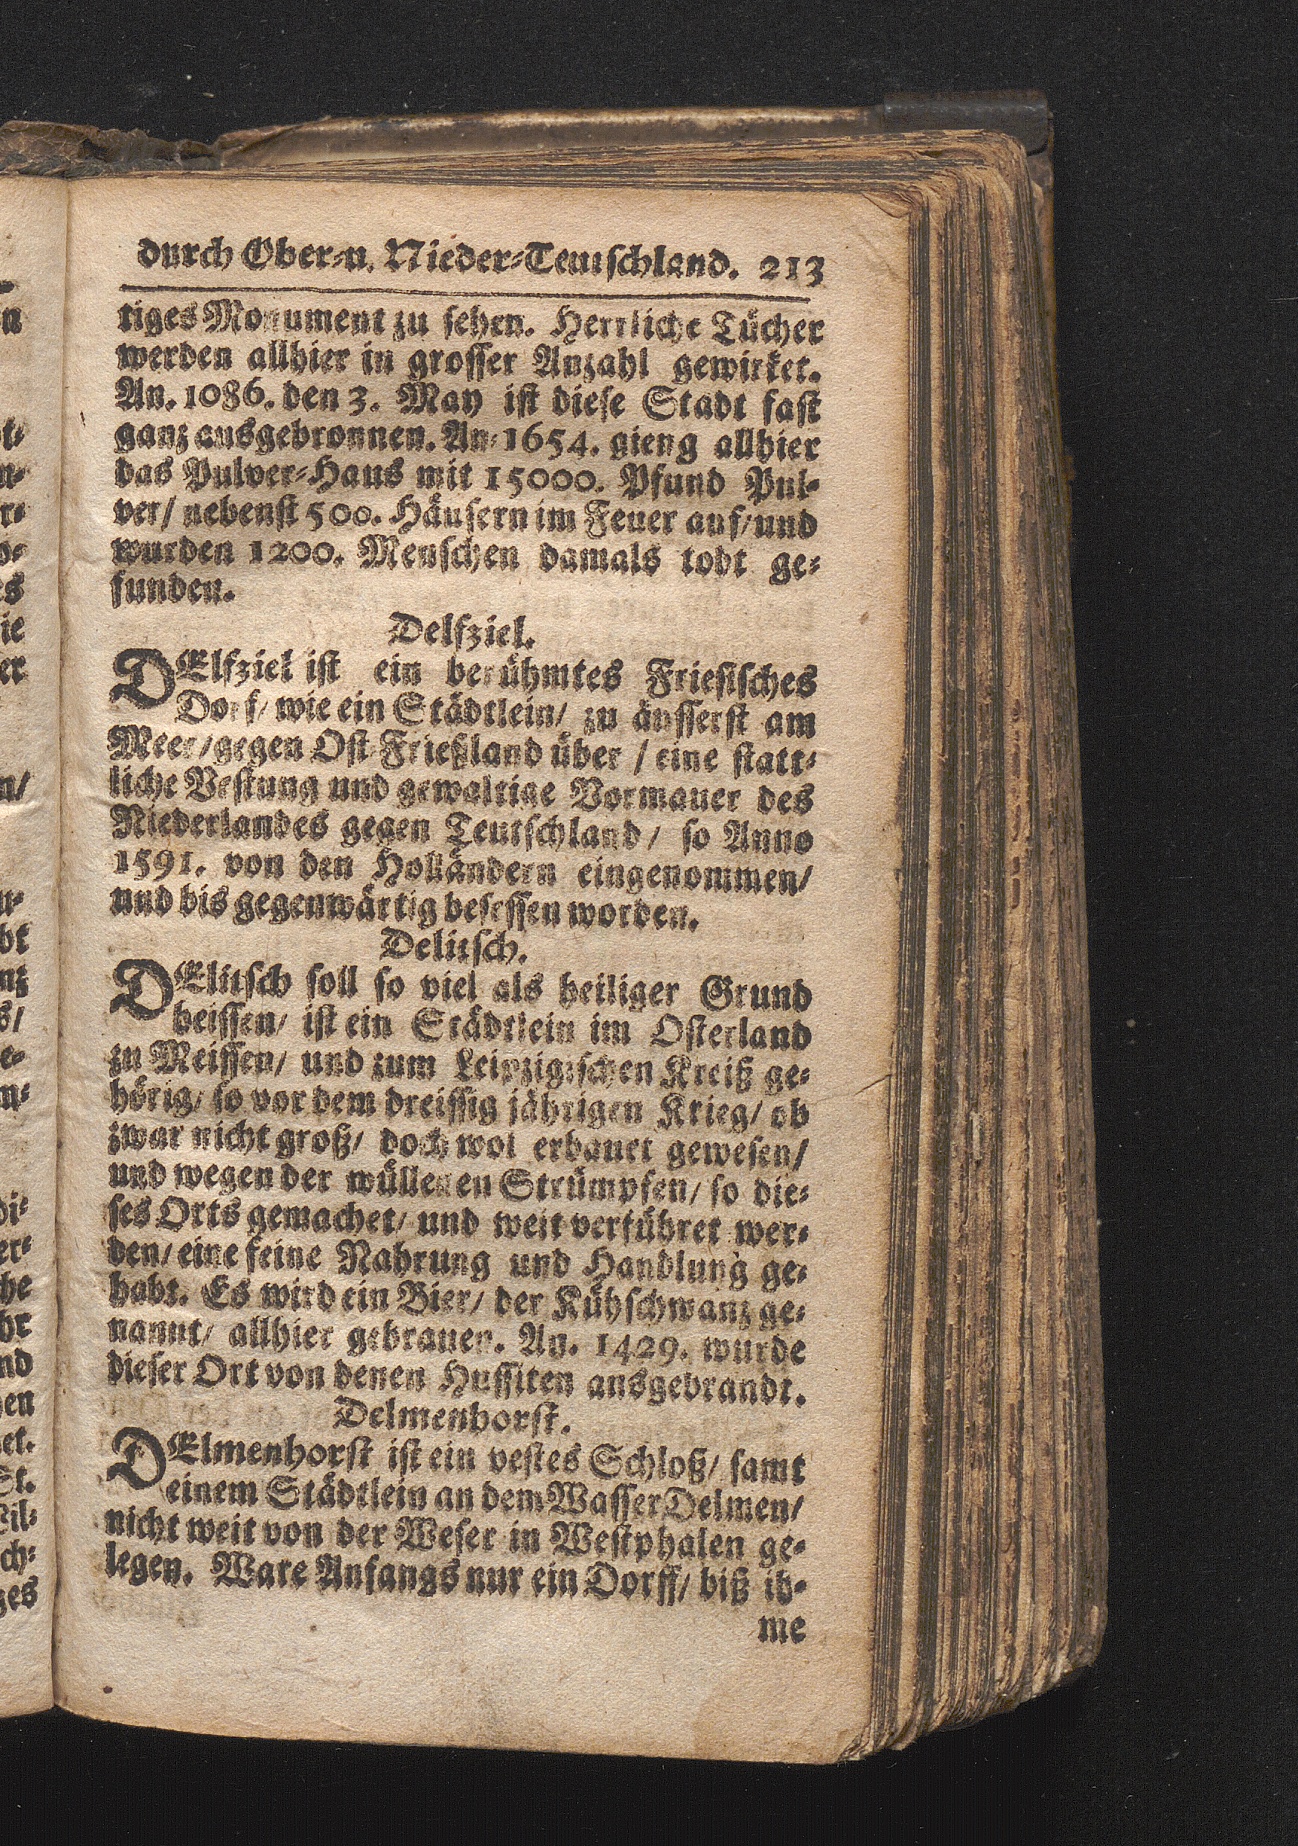 durch Ober-u. Nieder-Teutschland. 213
tiges Monument zu sehen. Herrliche Tücher
werden allhier in grosser Anzahl gewirket.
An. 1086. den 3. May ist diese Stadt fast
ganz ausgebronnen. An. 1654. gieng allhier
das Pulver-Haus mit 15000. Pfund Pul-
ver/ nebenst 500. Häusern im Feuer auf/ und
wurden 1200. Menschen damals todt ge-
funden.
Delfziel.
DElfziel ist ein berühmtes Friesisches
Dorf/ wie ein Städtlein/ zu äusserst am
Meer/ gegen Ost-Frießland über / eine statt-
liche Vestung und gewaltige Vormauer des
Niederlandes gegen Teutschland/ so Anno
1591. von den Holländern eingenommen/
und bis gegenwärtig besessen worden.
Delitsch.
DElitsch soll so viel als heiliger Grund
heissen/ ist ein Städtlein im Osterland
zu Meissen/ und zum Leipzigischen Kreiß ge-
hörig/ so vor dem dreissig jährigen Krieg/ ob
zwar nicht groß/ doch wol erbauet gewesen/
und wegen der wüllenen Strümpfen/ so die-
ses Orts gemachet/ und weit verführet wer-
den/ eine feine Nahrung und Handlung ge-
habt. Es wird ein Bier/ der Kühschwanz ge-
nannt/ allhier gebrauen. An. 1429. wurde
dieser Ort von denen Hussiten ausgebrandt.
Delmenhorst.
DElmenhorst ist ein vestes Schloß/ samt
einem Städtlein an dem Wasser Delmen/
nicht weit von der Weser in Westphalen ge-
legen. Ware Anfangs nur ein Dorff/ biß ih-
me